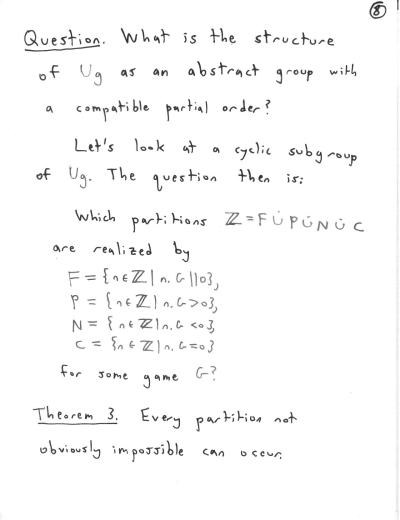 8
Question. What is the structure
of Ug as an abstract group with
a compatible partial order?
Let's look at a cyclic subgroup
of Ug. The question then is:
Which partitions ℤ = F ∪̇ P ∪̇ N ∪̇ C
are realized by
F = {n∈ℤ | n.G || 0},
P = {n∈ℤ | n.G > 0},
N = {n∈ℤ | n.G < 0},
C = {n∈ℤ | n.G = 0}
for some game G?
Theorem 3. Every partition not
obviously impossible can occur.